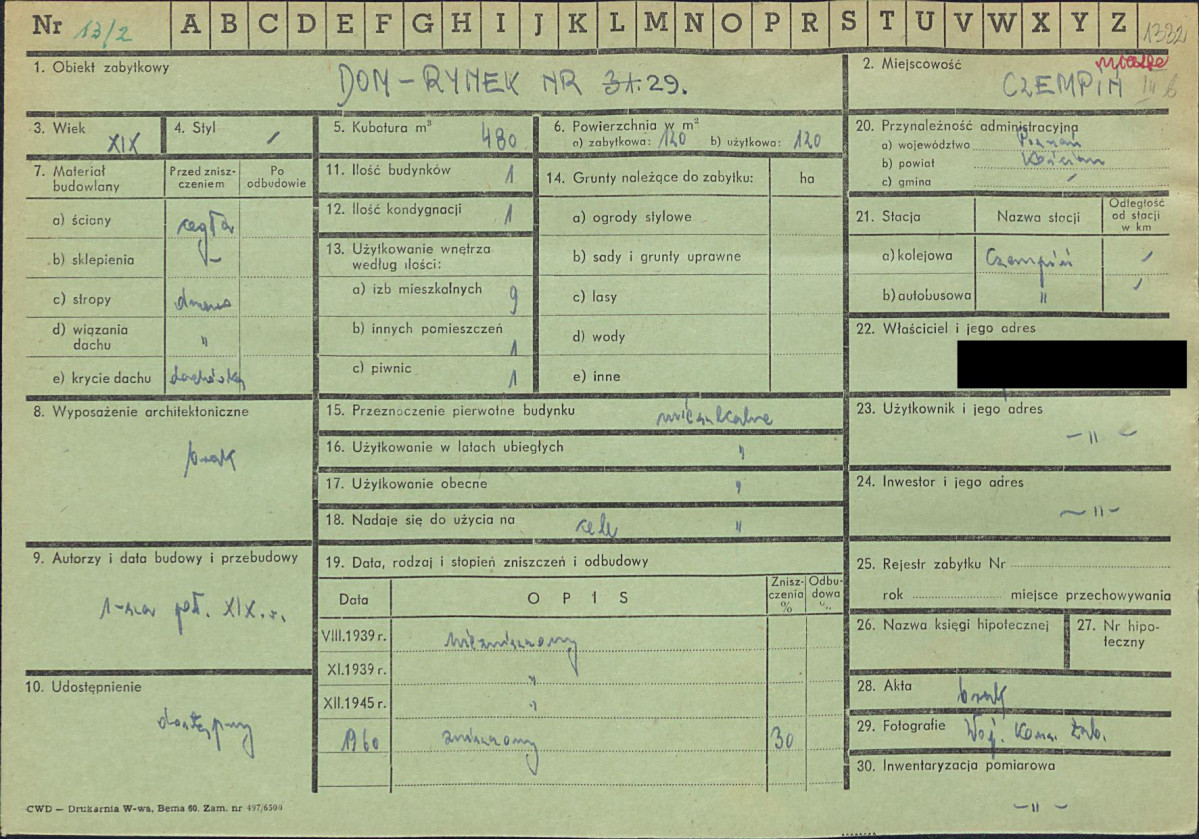 Nr 13/2 A B C D E F G H I J K L M N O P R S T U V W X Y Z 1322
1. Obiekt zabytkowy
DOM - RYNEK NR 31. 29.
2. Miejscowość
miasto
CZEMPIŃ III b
3. Wiek
XIX
4. Styl
/
5. Kubatura m³
480
6. Powierzchnia w m²
a) zabytkowa: 120 b) użytkowa: 120
20. Przynależność administracyjna
a) województwo Poznań
b) powiat Kościan
c) gmina /
7. Materiał budowlany
Przed zniszczeniem
Po odbudowie
a) ściany cegła
b) sklepienia –
c) stropy drewno
d) wiązania dachu "
e) krycie dachu dachówka
11. Ilość budynków 1
12. Ilość kondygnacji 1
13. Użytkowanie wnętrza
według ilości:
a) izb mieszkalnych 9
b) innych pomieszczeń 1
c) piwnic 1
14. Grunty należące do zabytku: ha
a) ogrody stylowe
b) sady i grunty uprawne
c) lasy
d) wody
e) inne
21. Stacja
Nazwa stacji
Odległość od stacji w km
a) kolejowa Czempiń /
b) autobusowa " /
22. Właściciel i jego adres
8. Wyposażenie architektoniczne
brak
15. Przeznaczenie pierwotne budynku mieszkalne
16. Użytkowanie w latach ubiegłych "
17. Użytkowanie obecne "
18. Nadaje się do użycia na cele "
23. Użytkownik i jego adres
– " –
24. Inwestor i jego adres
– " –
9. Autorzy i data budowy i przebudowy
1-sza poł. XIX. w.
19. Data, rodzaj i stopień zniszczeń i odbudowy
Data
O P I S
Zniszczenia %
Odbudowa %
VIII.1939 r. niezniszczony
XI.1939 r. "
XII.1945 r. "
1960 zniszczony 30
25. Rejestr zabytku Nr
rok miejsce przechowywania
26. Nazwa księgi hipotecznej
27. Nr hipoteczny
10. Udostępnienie
dostępny
28. Akta brak
29. Fotografie Woj. Kons. Zab.
30. Inwentaryzacja pomiarowa
– " –
CWD — Drukarnia W-wa, Bema 60, Zam. nr 497/6500